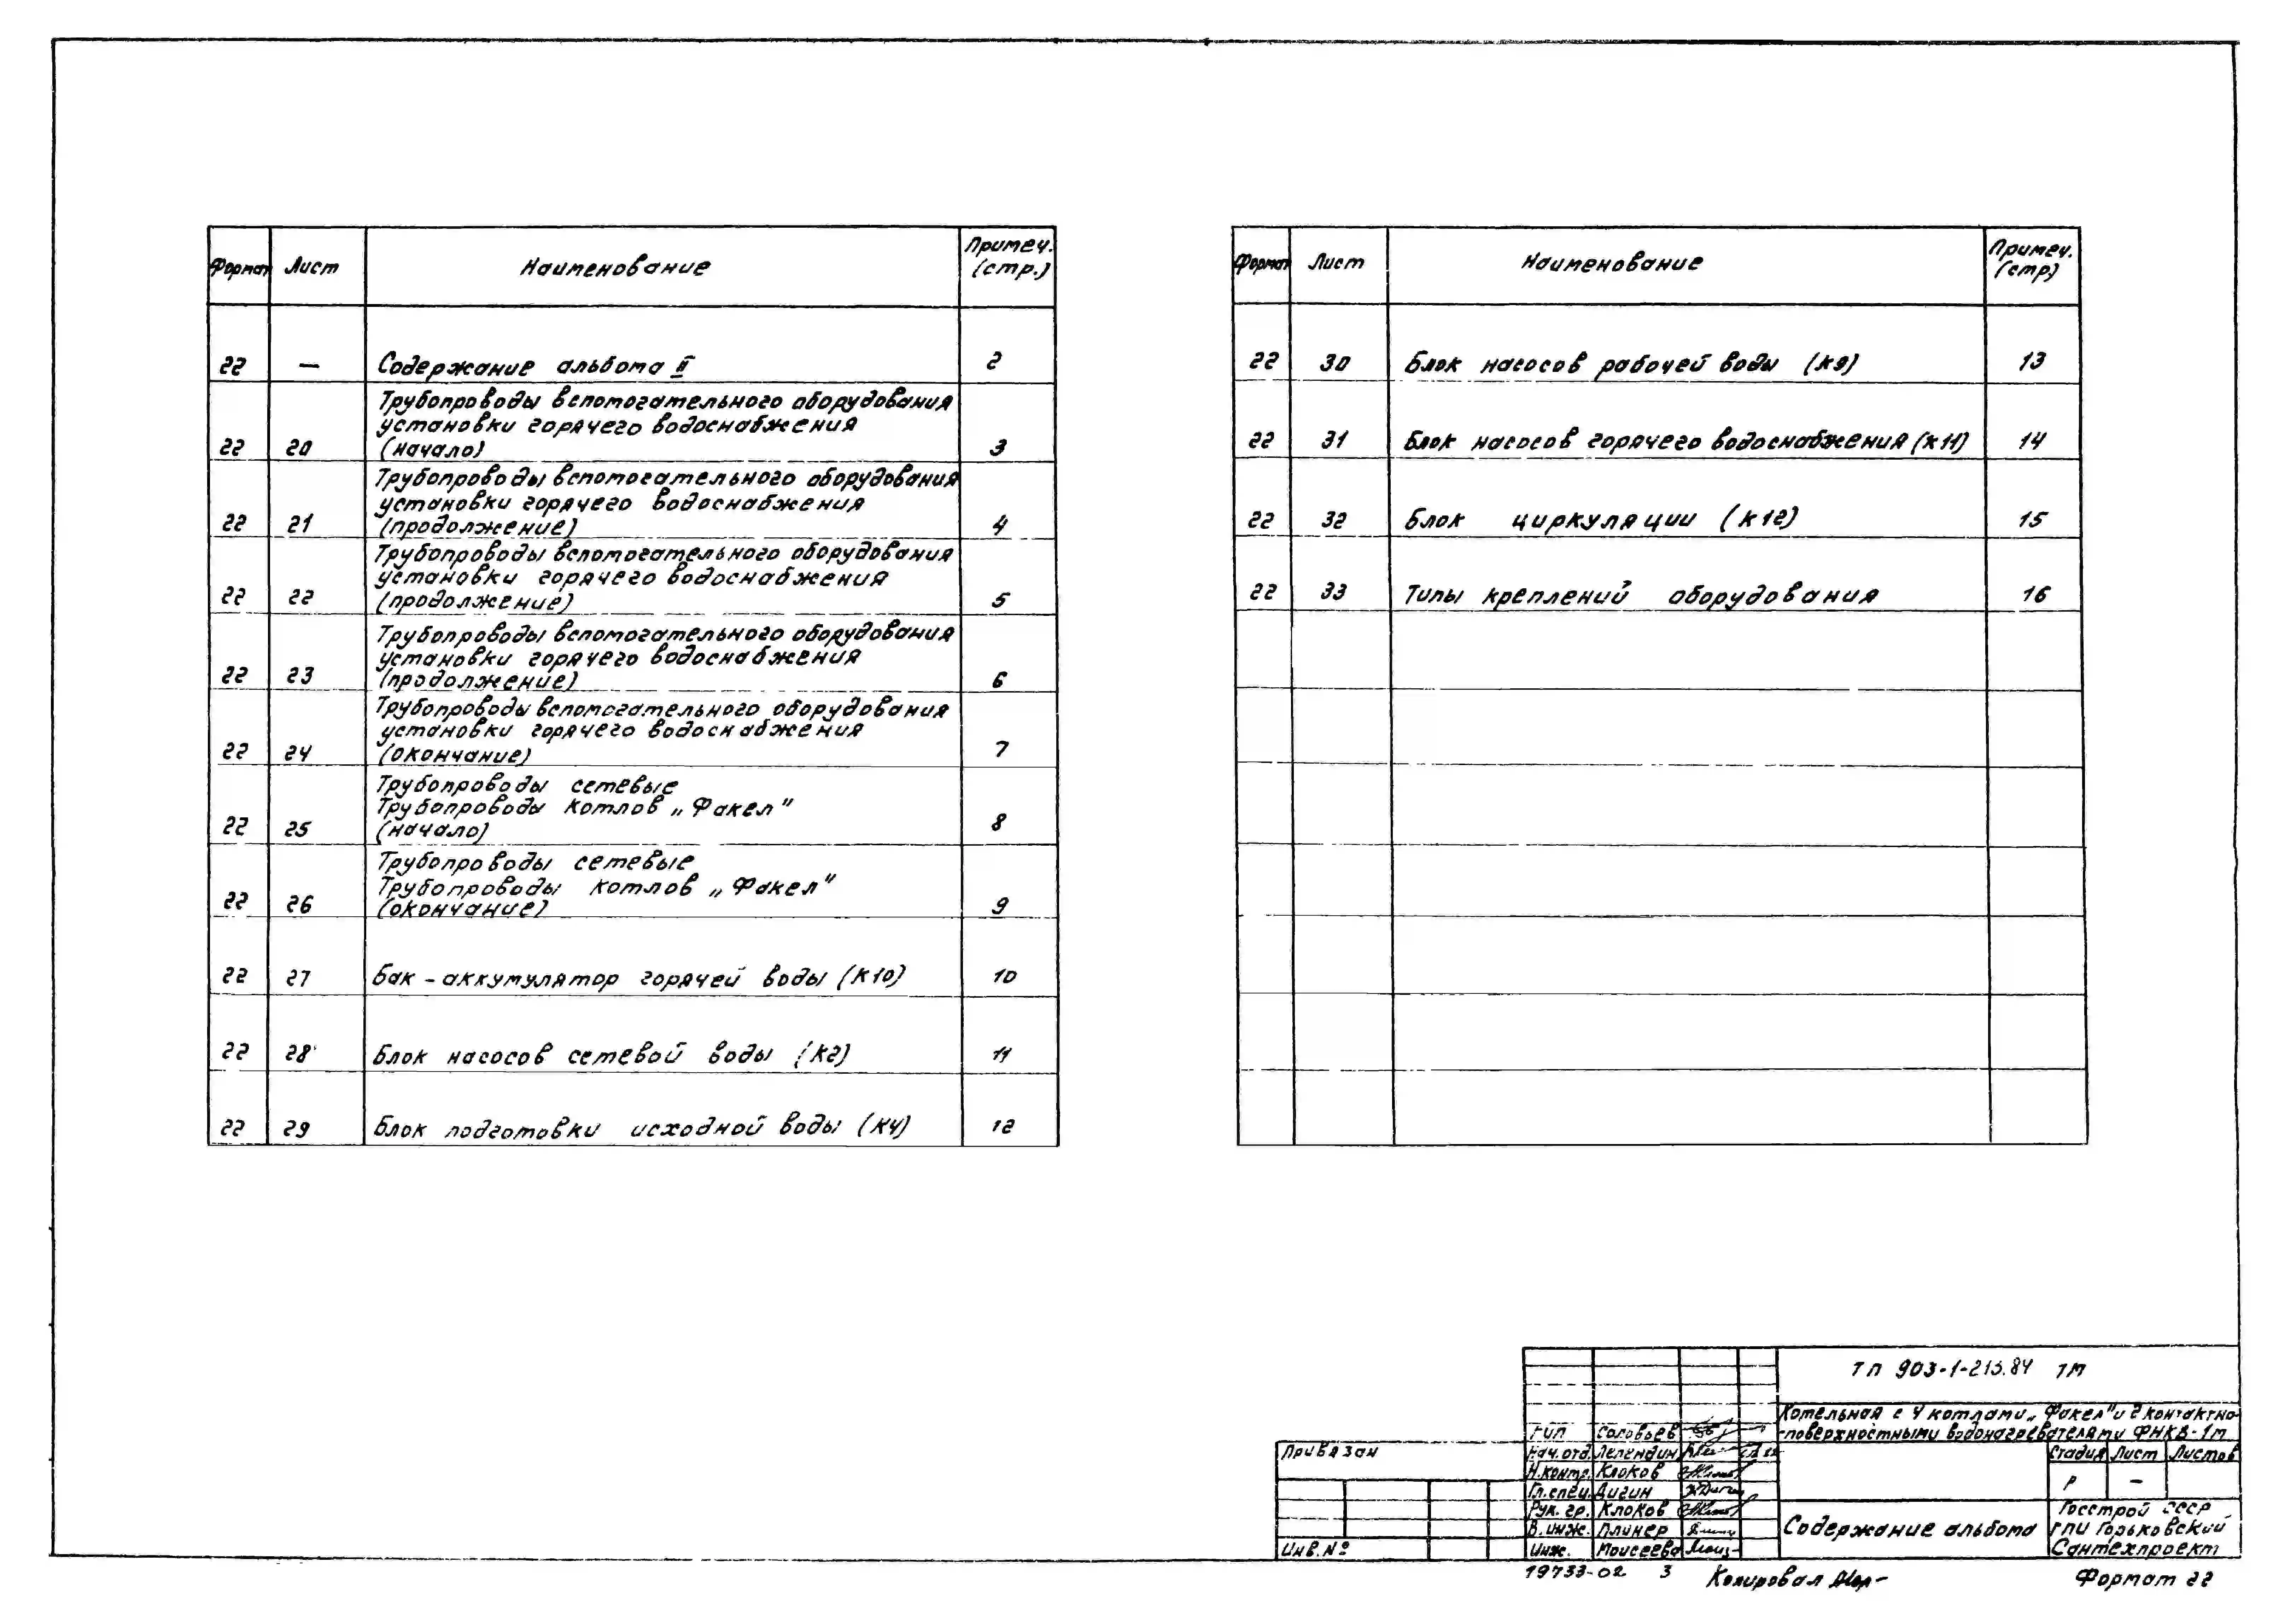 Формат Лист Наименование Примеч. (стр.)
22 — Содержание альбома II 2
Трубопроводы вспомогательного оборудования
установки горячего водоснабжения
22 20 (начало) 3
Трубопроводы вспомогательного оборудования
установки горячего водоснабжения
22 21 (продолжение) 4
Трубопроводы вспомогательного оборудования
установки горячего водоснабжения
22 22 (продолжение) 5
Трубопроводы вспомогательного оборудования
установки горячего водоснабжения
22 23 (продолжение) 6
Трубопроводы вспомогательного оборудования
установки горячего водоснабжения
22 24 (окончание) 7
Трубопроводы сетевые
Трубопроводы котлов „Факел"
22 25 (начало) 8
Трубопроводы сетевые
Трубопроводы котлов „Факел"
22 26 (окончание) 9
22 27 Бак-аккумулятор горячей воды (К10) 10
22 28 Блок насосов сетевой воды (К2) 11
22 29 Блок подготовки исходной воды (К4) 12
Формат Лист Наименование Примеч. (стр)
22 30 Блок насосов рабочей воды (К9) 13
22 31 Блок насосов горячего водоснабжения (К11) 14
22 32 Блок циркуляции (К12) 15
22 33 Типы креплений оборудования 16
ТП 903-1-213.84 ТМ
Котельная с 4 котлами „Факел" и 2 контактно-
-поверхностными водонагревателями ФНКВ-1м
Стадия Лист Листов
Р —
Содержание альбома
Госстрой СССР
ГПИ Горьковский
Сантехпроект
Привязан
Инв. №
ГИП Соловьев
Нач. отд. Лелендин
Н.контр. Клоков
Гл.спец. Дигин
Рук. гр. Клоков
В. инж. Плинер
Инж. Моисеева
19733-02 3
Копировал
Формат 22